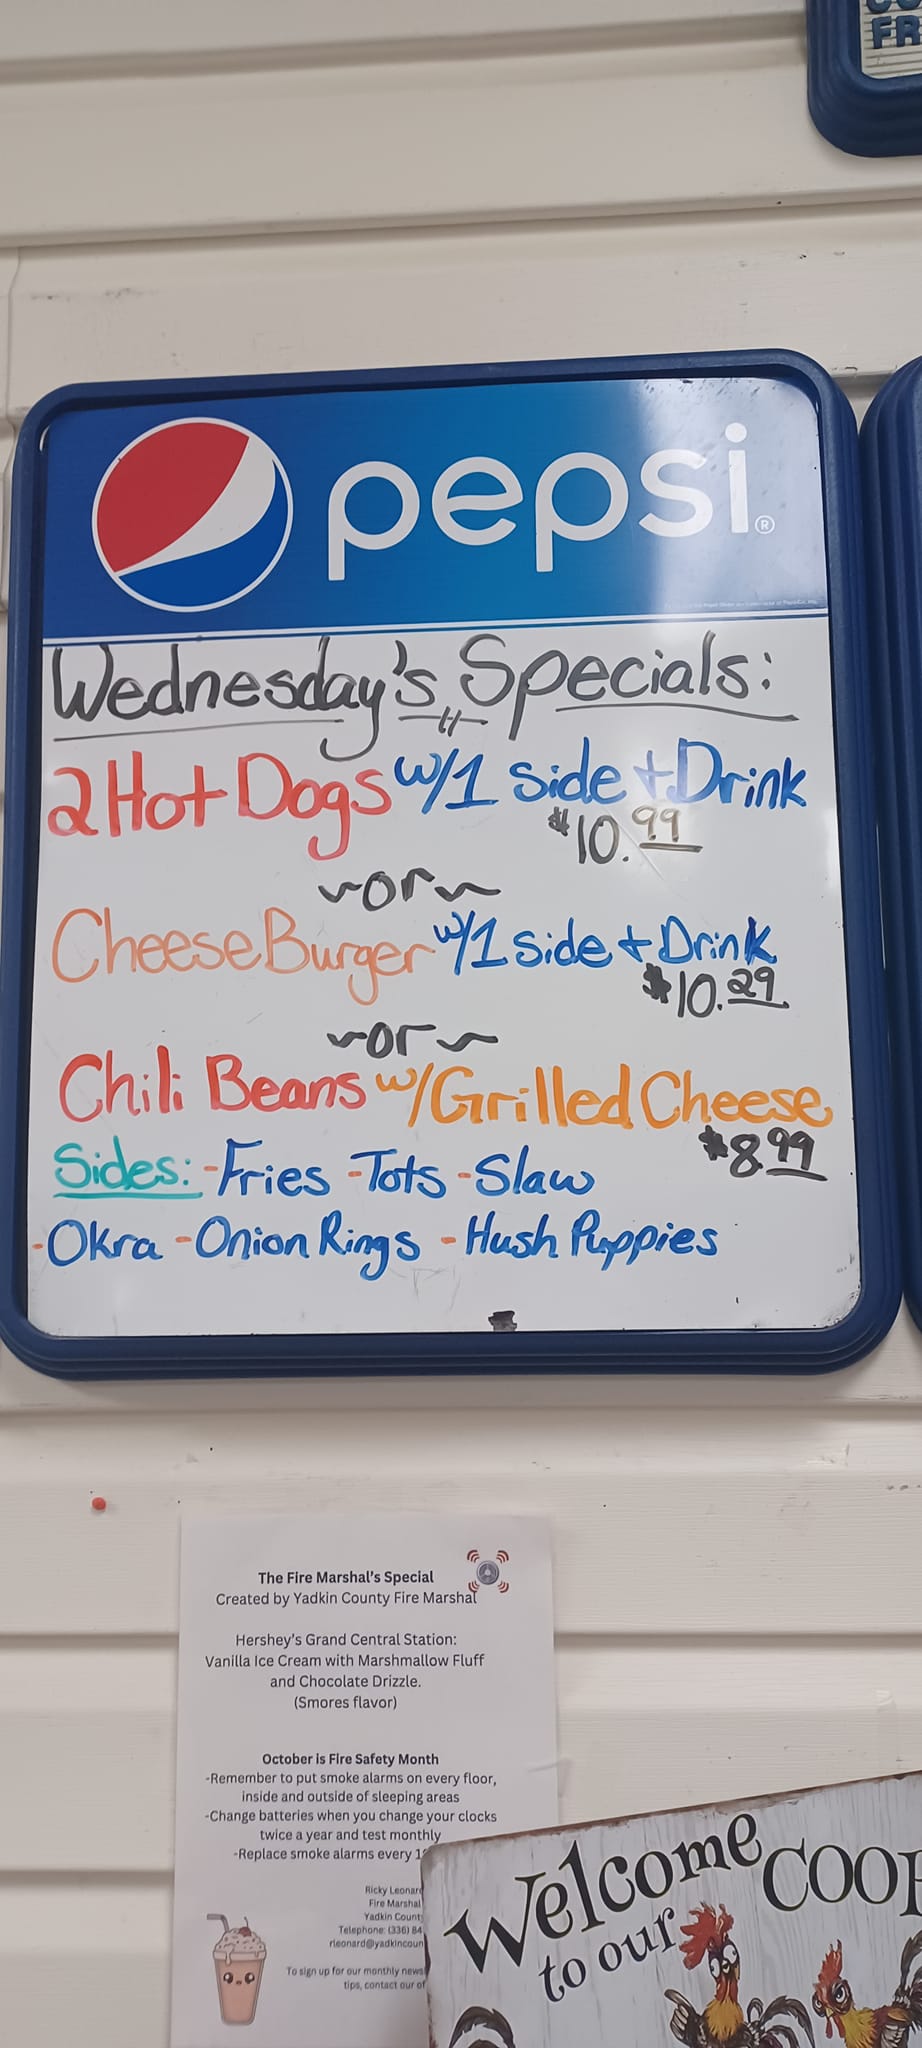 FR
pepsi®
Wednesday's Specials:
2 Hot Dogs w/1 side + Drink
$10.99
~or~
Cheese Burger w/1 side + Drink
$10.29
~or~
Chili Beans w/Grilled Cheese
$8.99
Sides: -Fries -Tots -Slaw
-Okra -Onion Rings -Hush Puppies
The Fire Marshal's Special
Created by Yadkin County Fire Marshal
Hershey's Grand Central Station:
Vanilla Ice Cream with Marshmallow Fluff
and Chocolate Drizzle.
(Smores flavor)
October is Fire Safety Month
-Remember to put smoke alarms on every floor,
inside and outside of sleeping areas
-Change batteries when you change your clocks
twice a year and test monthly
-Replace smoke alarms every 1
Ricky Leonar
Fire Marshal
Yadkin Count
Telephone: (336) 84
rleonard@yadkincoun
To sign up for our monthly news
tips, contact our of
Welcome
to our
COO